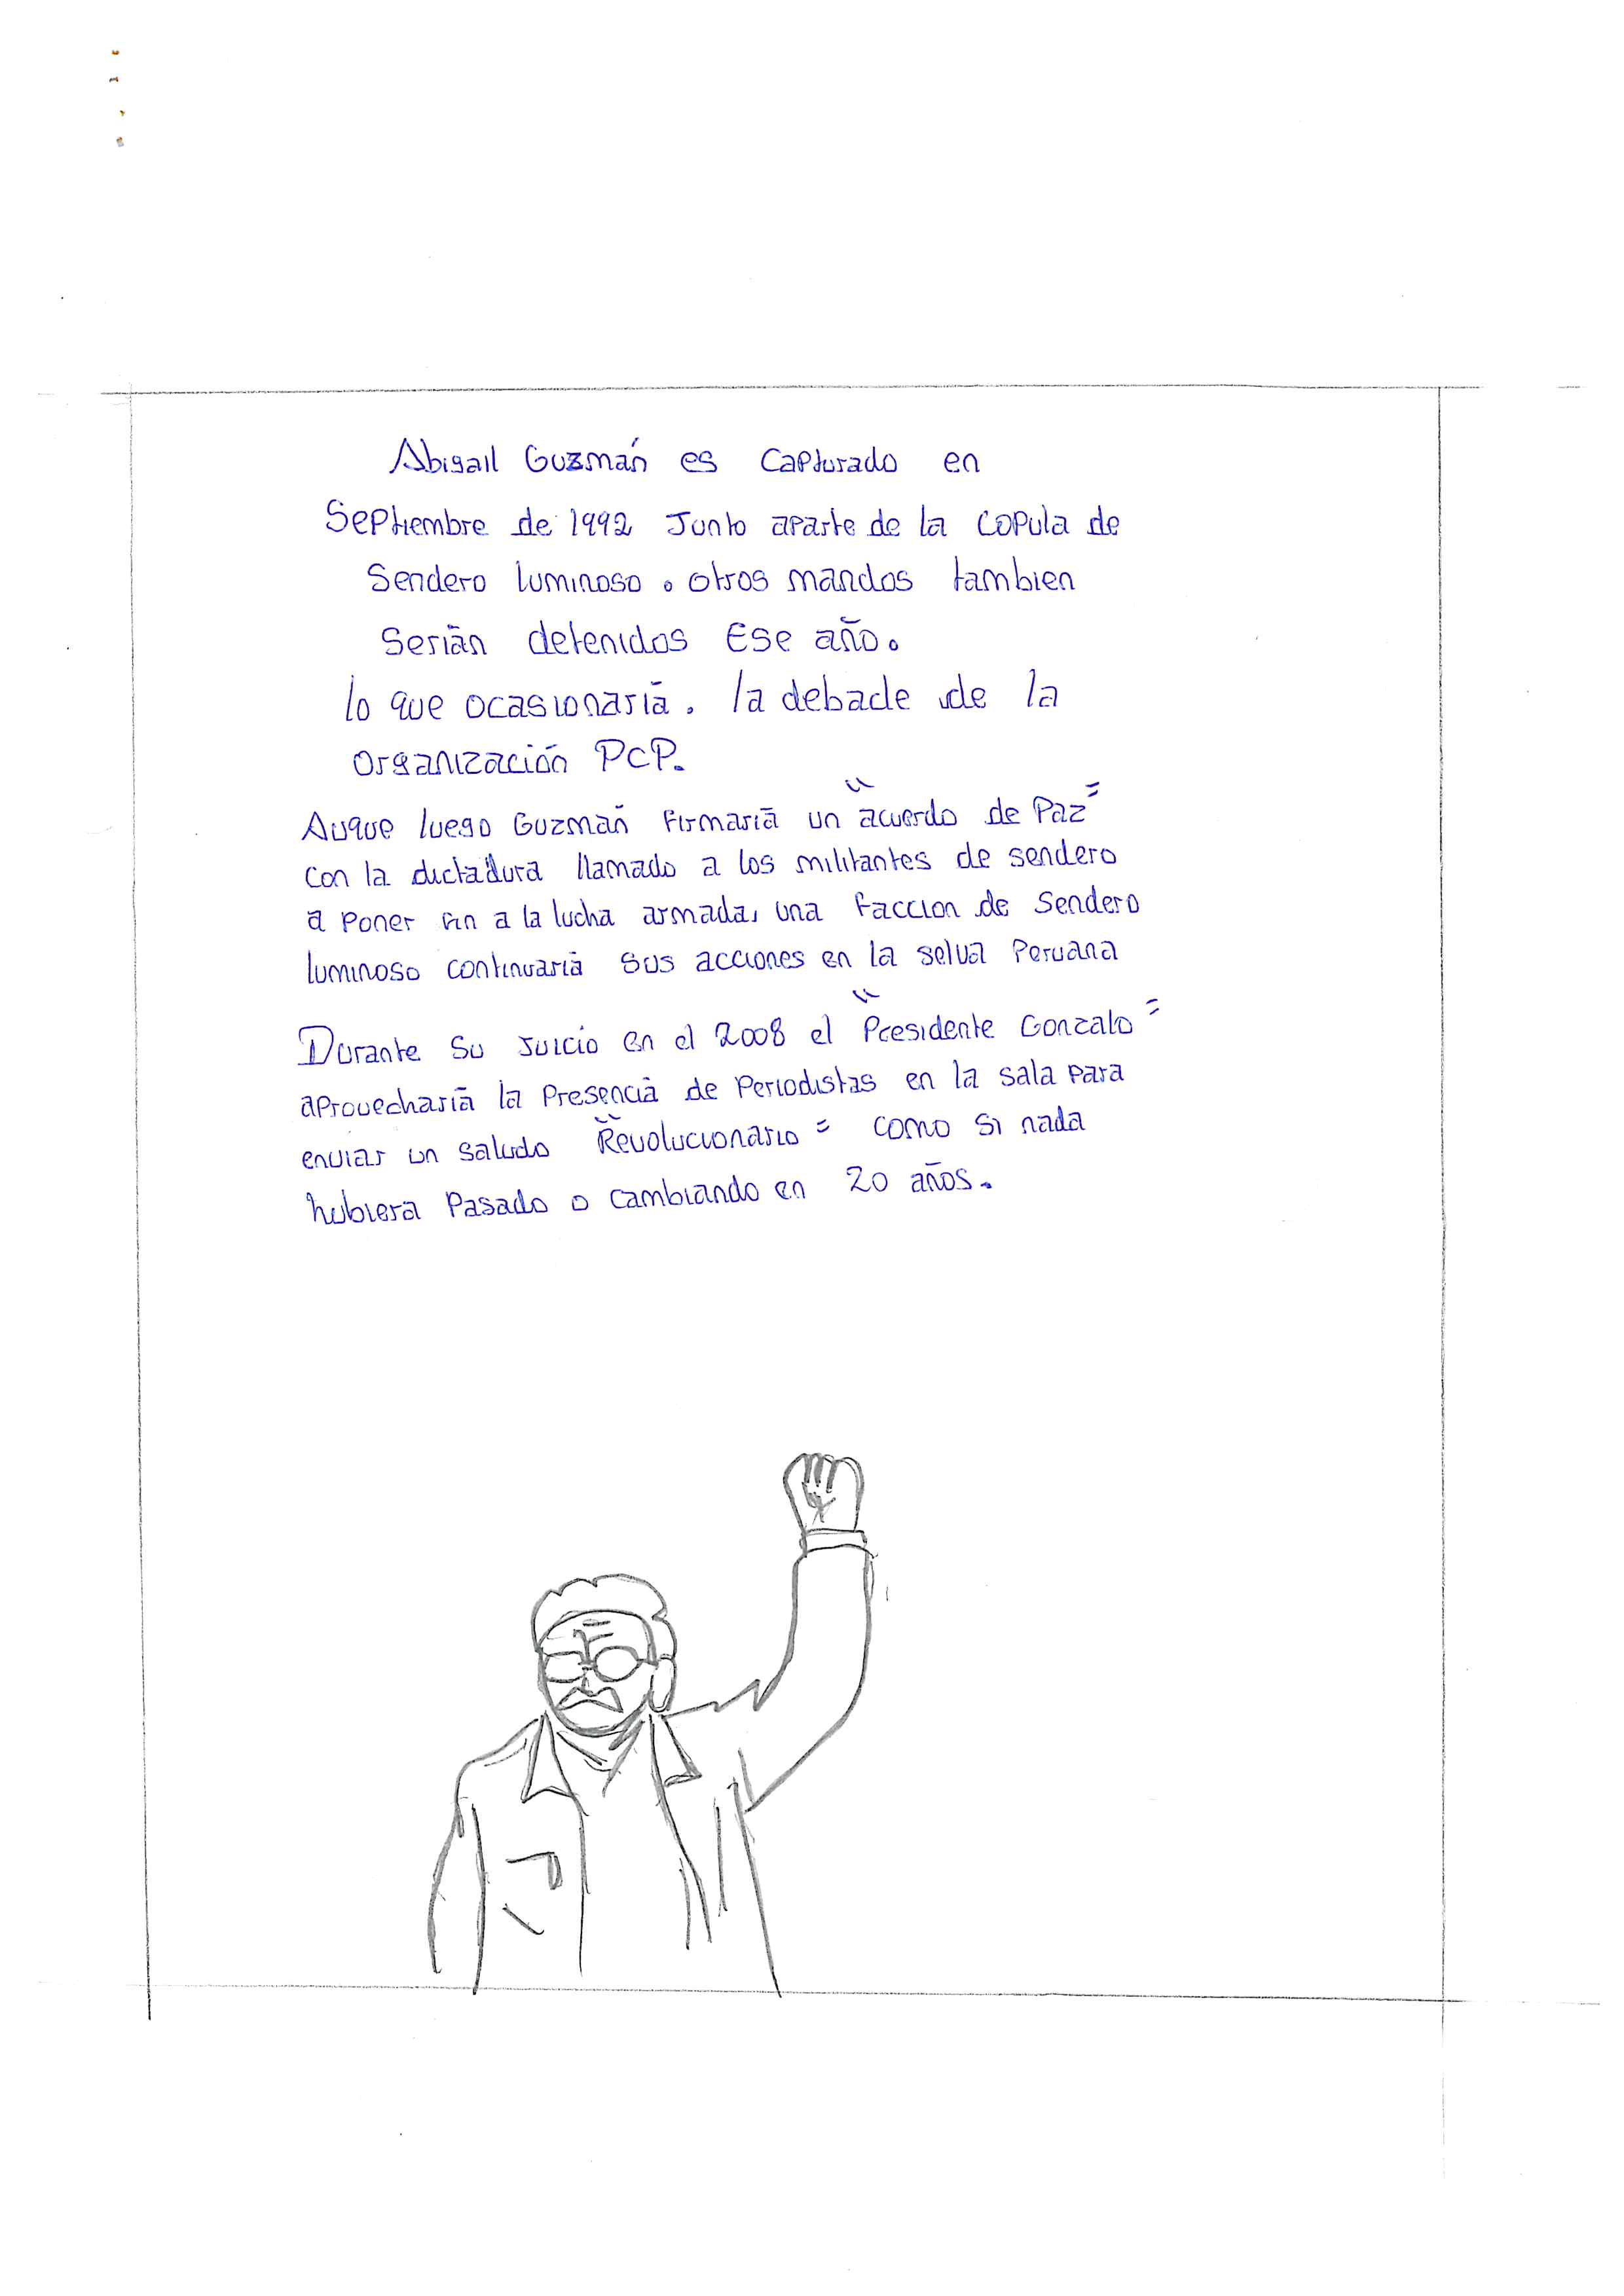 Abigail Guzmán es capturado en
Septiembre de 1992 Junto aparte de la copula de
Sendero luminoso. otros mandos tambien
Serián detenidos Ese año.
lo que ocasionariá. la debacle de la
organización PCP.
Auque luego Guzmán firmariá un "acuerdo de Paz"
con la dictadura llamado a los militantes de sendero
a Poner fin a la lucha armada, una faccion de Sendero
luminoso continuariá sus acciones en la selva Peruana
Durante su Juicio en el 2008 el "Presidente Gonzalo"
aprovechariá la Presenciá de Periodistas en la sala para
enviar un saludo "Revolucionario" como si nada
hubiera Pasado o cambiando en 20 años.